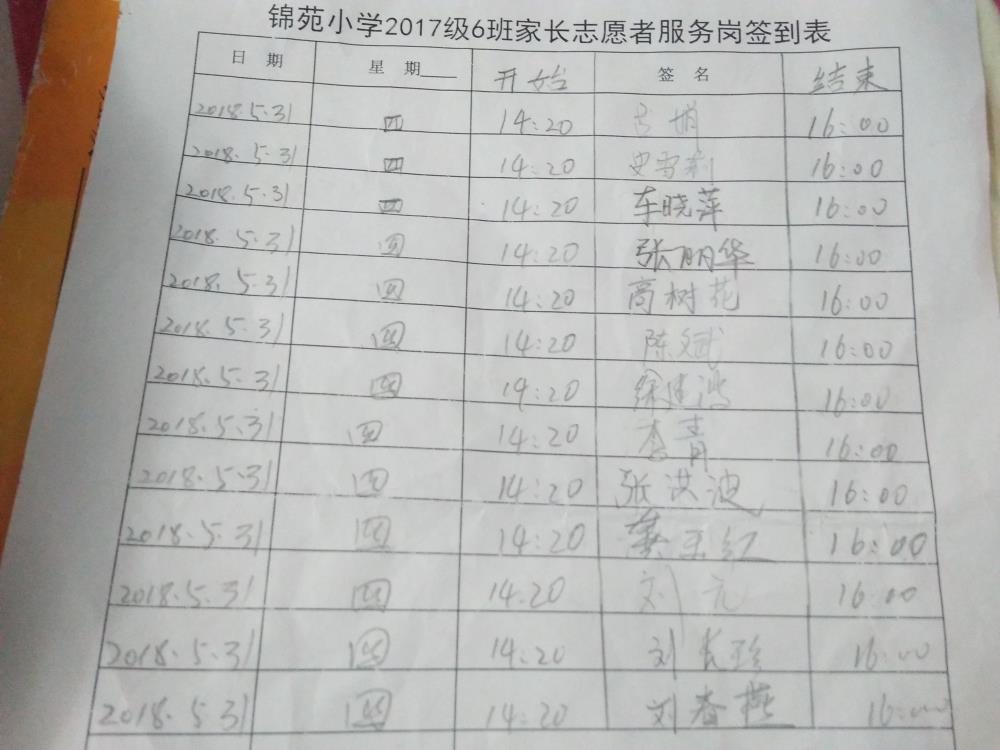 锦苑小学2017级6班家长志愿者服务岗签到表
日 期 星 期___ 开始 签 名 结束
2018.5.31 四 14:20 16:00
2018.5.31 四 14:20 史雪莉 16:00
2018.5.31 四 14:20 车晓萍 16:00
2018.5.31 四 14:20 张丽华 16:00
2018.5.31 四 14:20 高树花 16:00
2018.5.31 四 14:20 陈斌 16:00
2018.5.31 四 14:20 16:00
2018.5.31 四 14:20 李青 16:00
2018.5.31 四 14:20 张洪波 16:00
2018.5.31 四 14:20 16:00
2018.5.31 四 14.20 刘元 16:00
2018.5.31 四 14:20 刘长珍 16:00
2018.5.31 四 14:20 刘春燕 16:00